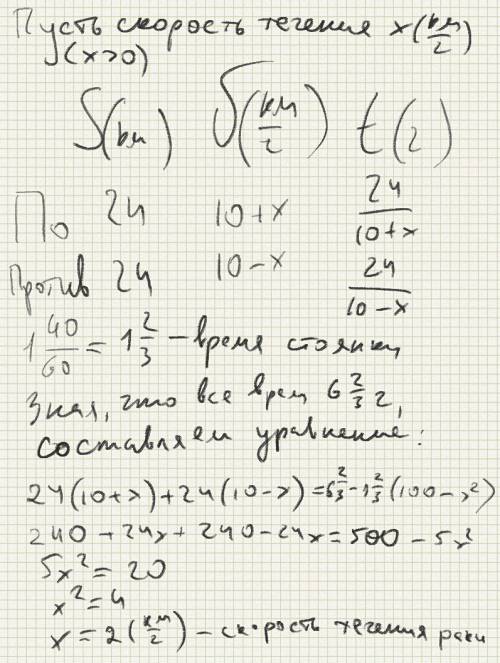 Пусть скорость течения x(км/г)
(x>0)
S(км) V(км/г) t(г)
По 24 10+x 24/10+x
Против 24 10-x 24/10-x
1 40/60 = 1 2/3 - время стоянки
Зная, что все врем 6 2/3 г,
составляем уравнение:
24(10+x)+24(10-x)=6 2/3-1 2/3(100-x²)
240+24x+240-24x=500-5x²
5x²=20
x²=4
x=2(км/г) - скорость течения раки